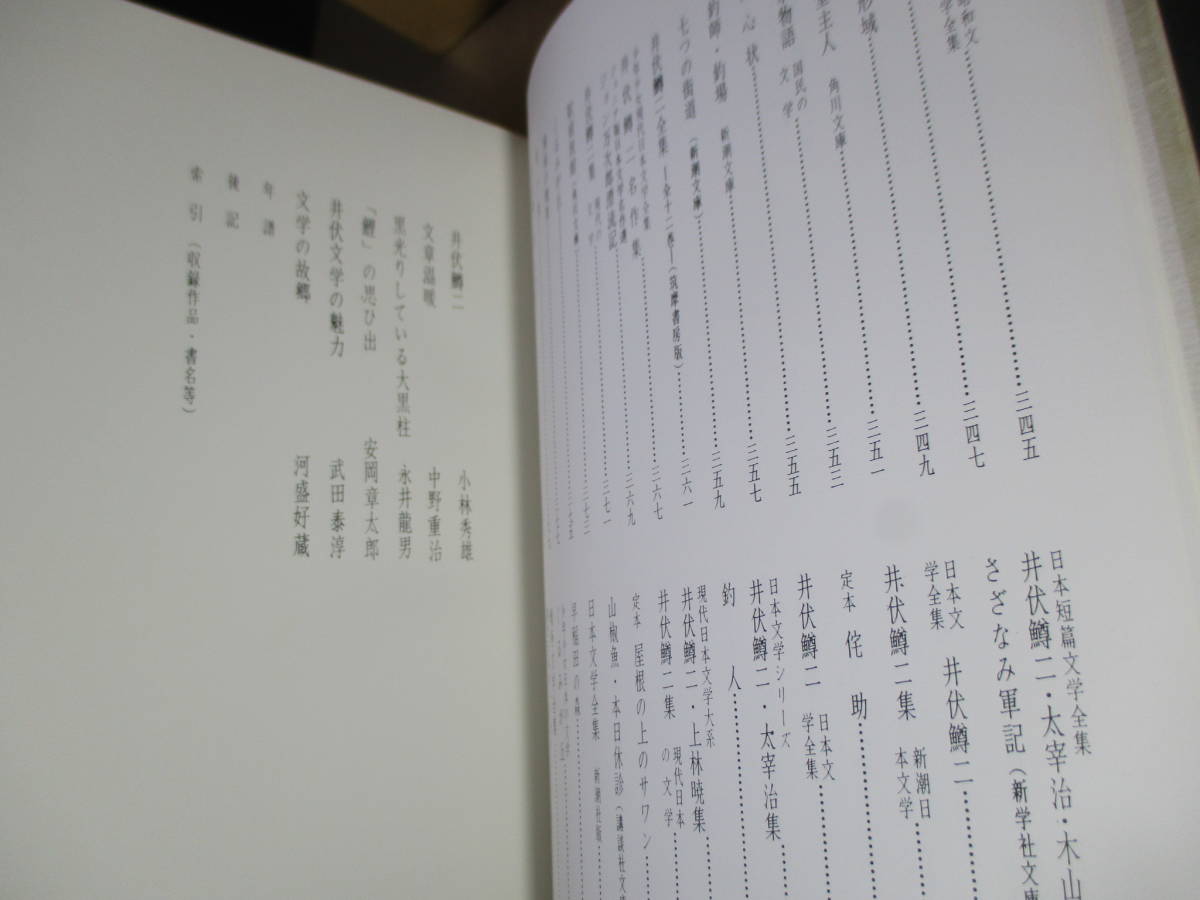 昭和文
学全集……三四五
……三四七
形城……三四九
主人 角川文庫……三五一
物語 国民の文学……三五三
心状……三五五
釣師・釣場 新潮文庫……三五七
七つの街道（新潮文庫）……三五九
井伏鱒二全集―全十二巻―（筑摩書房版）……三六一
井伏鱒二名作集……三六七
ジョン万次郎漂流記……三六九
井伏鱒二集……三七一
日本短篇文学全集
井伏鱒二・太宰治・木山
さざなみ軍記（新学社文庫
日本文
学全集 井伏鱒二……
井伏鱒二集 新潮日
本文学……
定本 侘助……
井伏鱒二 日本文
学全集……
日本文学シリーズ
井伏鱒二・太宰治集……
釣人……
現代日本文学大系
井伏鱒二・上林暁集……
井伏鱒二集 現代日本
の文学……
定本 屋根の上のサワン……
山椒魚・本日休診（講談社文
日本文学全集 新潮社版……
早稲田の森……
井伏鱒二 小林秀雄
文章温暖 中野重治
黒光りしている大黒柱 永井龍男
「鯉」の思ひ出 安岡章太郎
井伏文学の魅力 武田泰淳
文学の故郷 河盛好蔵
年譜
後記
索引（収録作品・書名等）